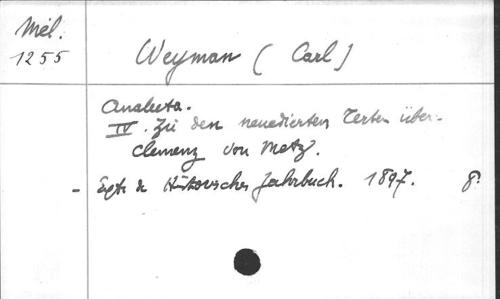 Mél.
1255
Weyman (Carl)
Analecta.
IV. Zu den neuedierten Texten über
Clemenz von Metz.
- Extr. de Historisches Jahrbuch. 1897. 8°.